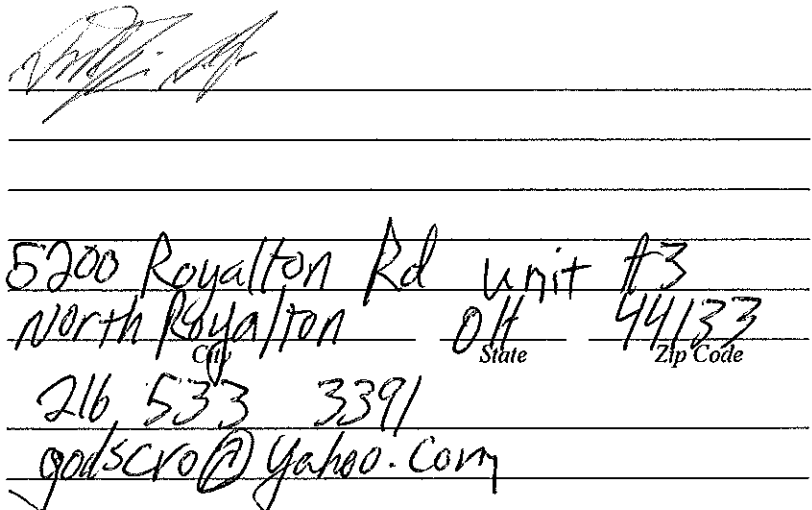 5200 Royalton Rd unit #3
North Royalton OH 44133
City State Zip Code
216 533 3391
godscro@yahoo.com